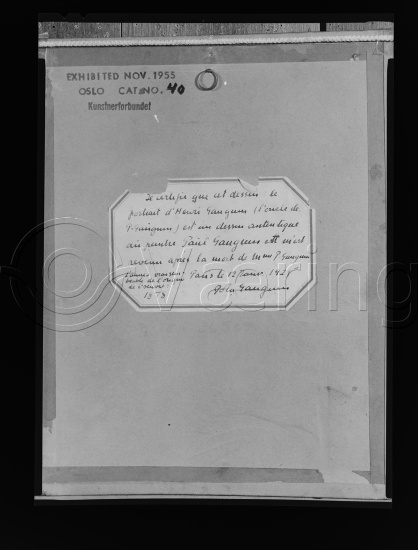 EXHIBITED NOV. 1955
OSLO CAT. NO. 40
Kunstnerforbundet
Je certifie que cet dessin le
portrait d'Henri Gauguin (l'oncle de
P. Gauguin) est un dessin autentique
du peintre Paul Gauguin et m'est
revenu après la mort de Mme P. Gauguin
Paris le 12
Pola Gauguin